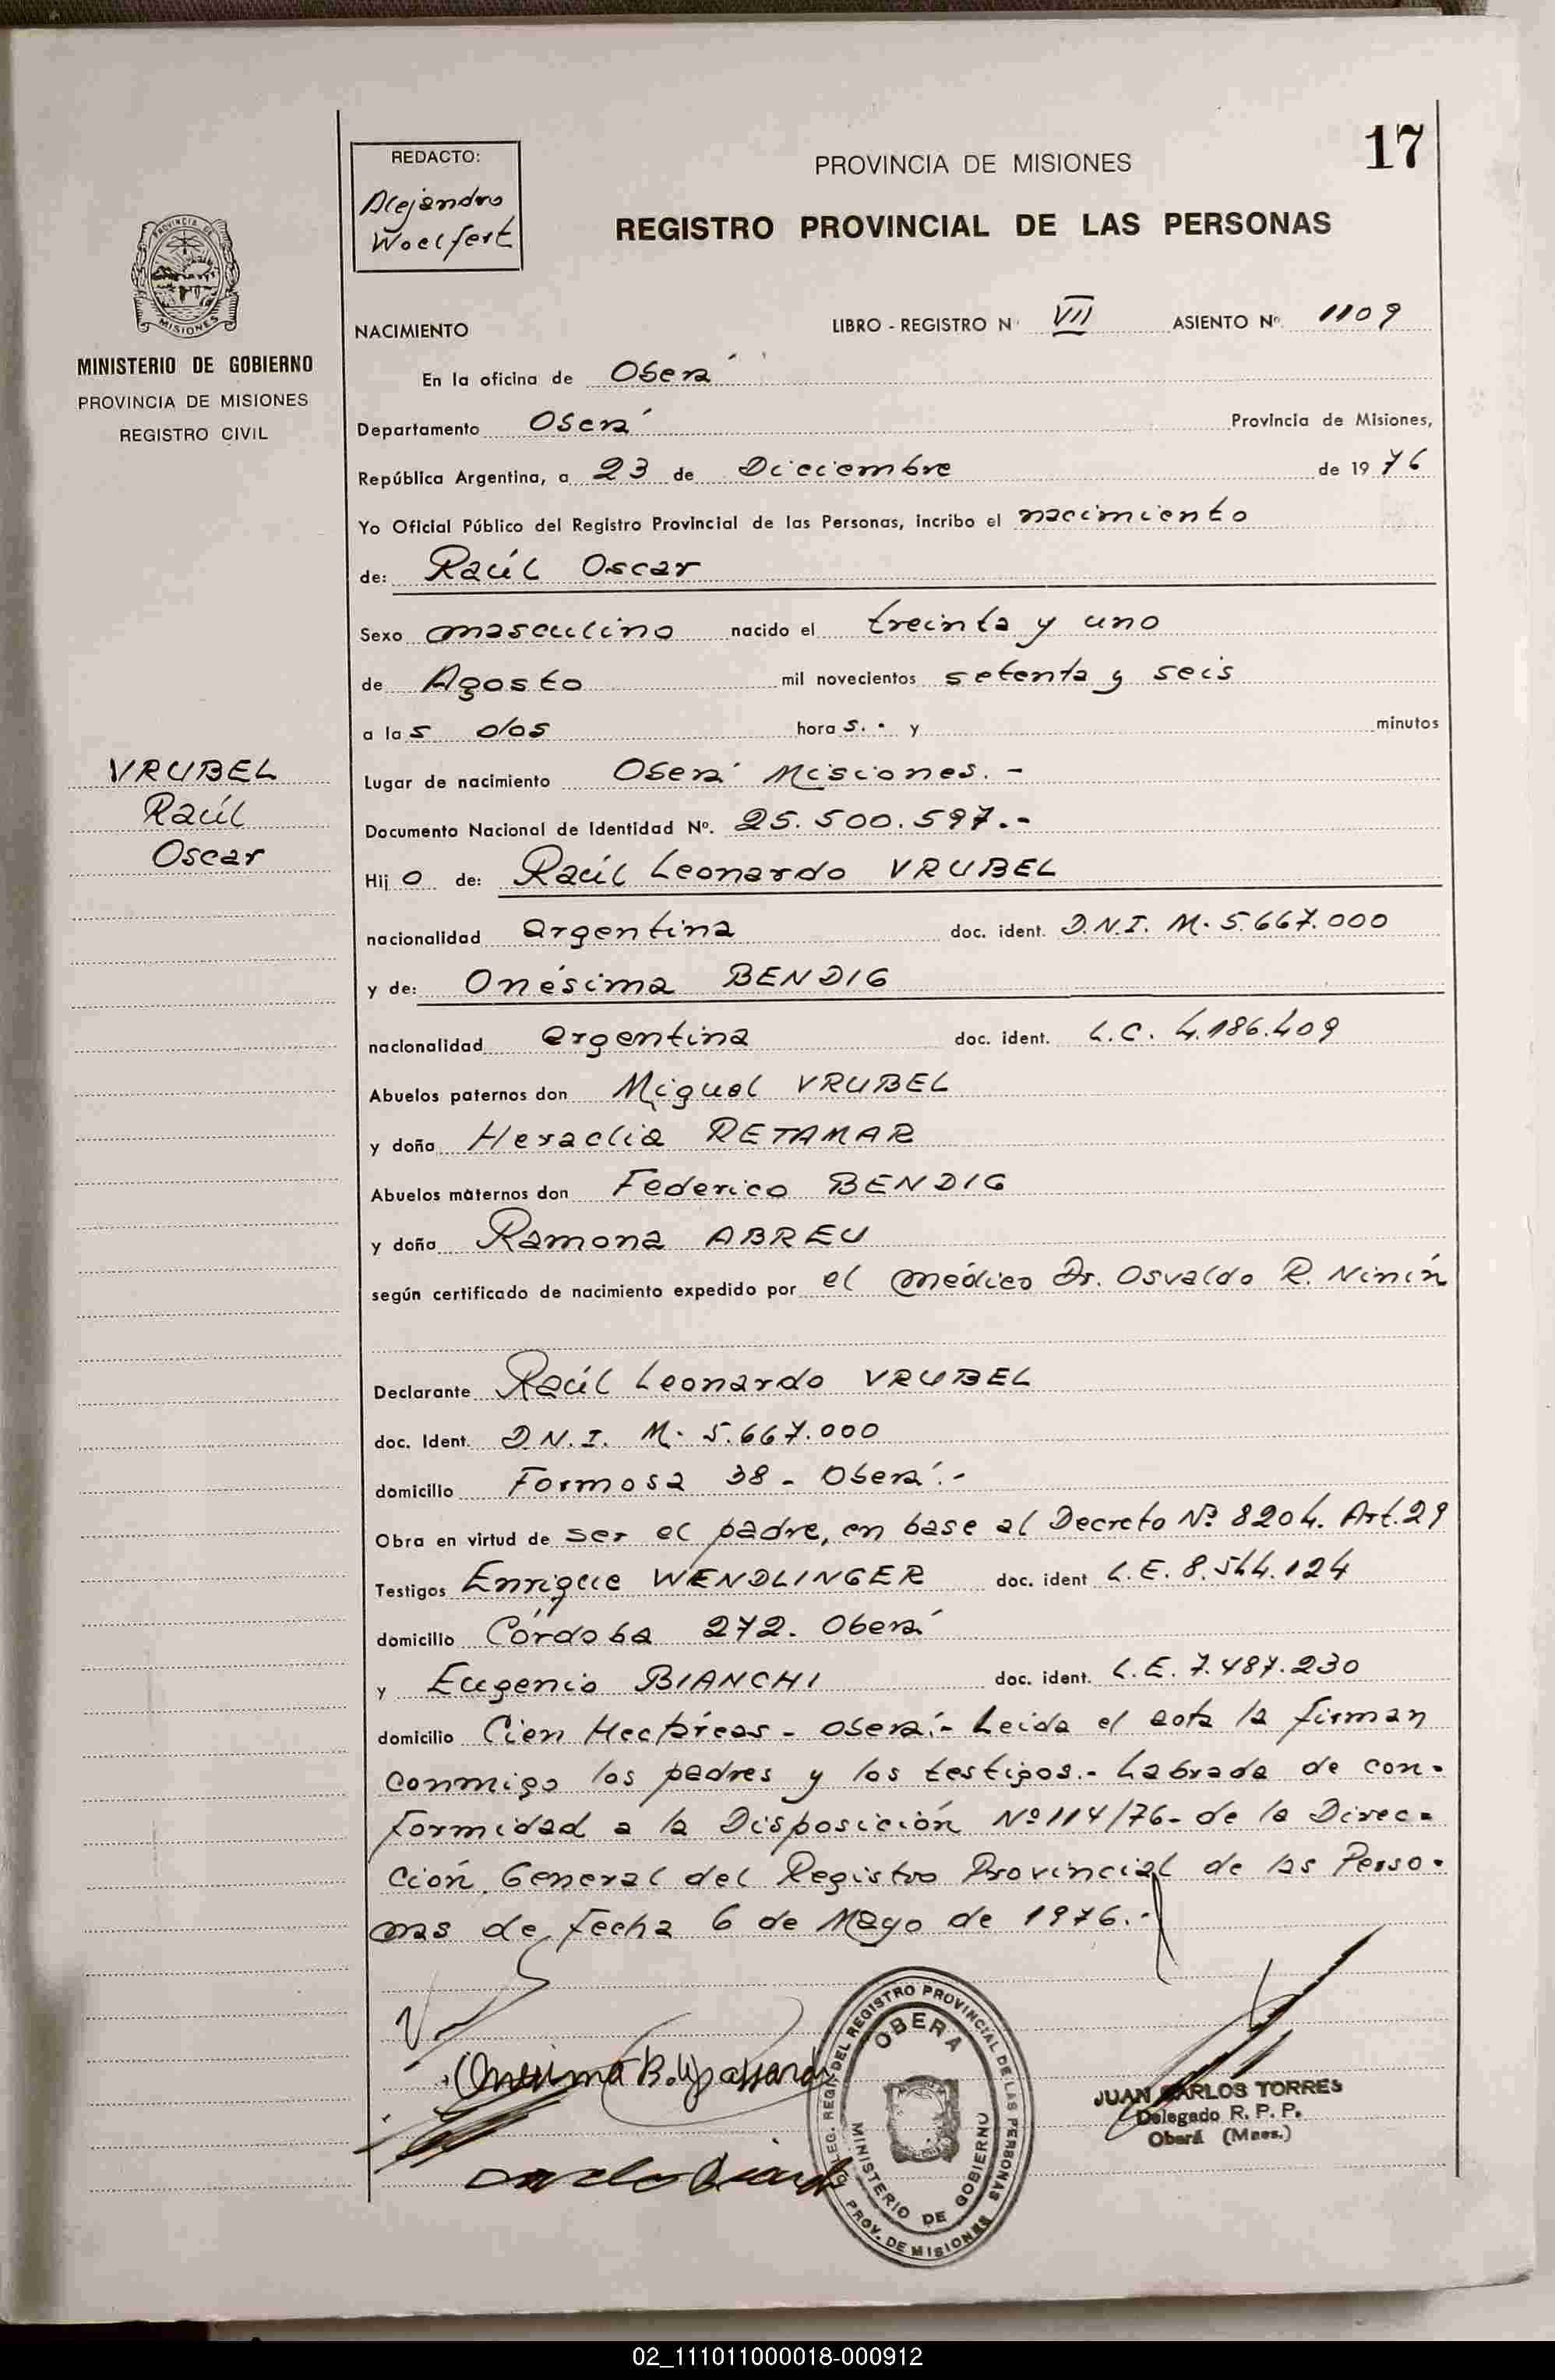 17
REDACTO:
Alejandro
Woelfert
PROVINCIA DE MISIONES
REGISTRO PROVINCIAL DE LAS PERSONAS
PROVINCIA DE
MISIONES
MINISTERIO DE GOBIERNO
PROVINCIA DE MISIONES
REGISTRO CIVIL
NACIMIENTO LIBRO - REGISTRO N° VII ASIENTO Nº. 1109
En la oficina de Oberá
Departamento Oberá Provincia de Misiones,
República Argentina, a 23 de Diciembre de 1976
Yo Oficial Público del Registro Provincial de las Personas, incribo el nacimiento
de: Raúl Oscar
Sexo masculino nacido el treinta y uno
de Agosto mil novecientos setenta y seis
a las dos horas.- y minutos
VRUBEL
Raúl
Oscar
Lugar de nacimiento Oberá Misiones.-
Documento Nacional de Identidad Nº. 25.500.597.-
Hijo de: Raúl Leonardo VRUBEL
nacionalidad argentina doc. ident. D.N.I. M. 5.667.000
y de: Onésima BENDIG
nacionalidad argentina doc. ident. L.C. 4.186.409
Abuelos paternos don Miguel VRUBEL
y doña Heraclia RETAMAR
Abuelos maternos don Federico BENDIG
y doña Ramona ABREU
según certificado de nacimiento expedido por el médico Dr. Osvaldo R. Ninín
Declarante Raúl Leonardo VRUBEL
doc. Ident. D.N.I. M. 5.667.000
domicilio Formosa 38 - Oberá.-
Obra en virtud de ser el padre, en base al Decreto Nº 8204. Art.29
Testigos Enrique WENDLINGER doc. ident L.E. 8.544.124
domicilio Córdoba 272. Oberá
y Eugenio BIANCHI doc. ident. L.E. 7.487.230
domicilio Cien Hectáreas - Oberá.- Leida el acta la firman
conmigo los padres y los testigos.- Labrada de con-
formidad a la Disposición Nº 114/76- de la Direc-
ción General del Registro Provincial de las Perso-
nas de fecha 6 de Mayo de 1976.-
DEL REGISTRO PROVINCIAL DE LAS PERSONAS
OBERA
MINISTERIO DE GOBIERNO
PROV. DE MISIONES
JUAN CARLOS TORRES
Delegado R. P. P.
Oberá (Mnes.)
02_111011000018-000912